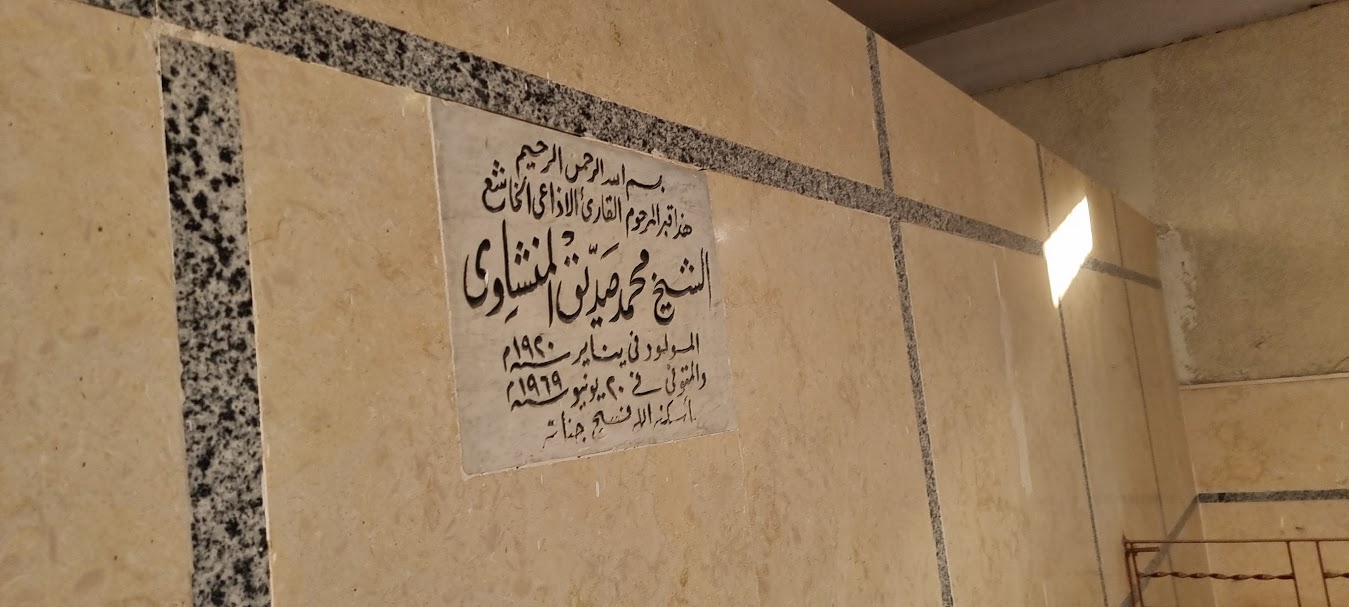 بسم الله الرحمن الرحيم
هذا قبر المرحوم القارئ الاذاعى الخاشع
الشيخ محمد صديق المنشاوى
المولود فى يناير سنة ١٩٢٠م
والمتوفى فى ٢٠ يونيو سنة ١٩٦٩م
أسكنه الله فسيح جناته